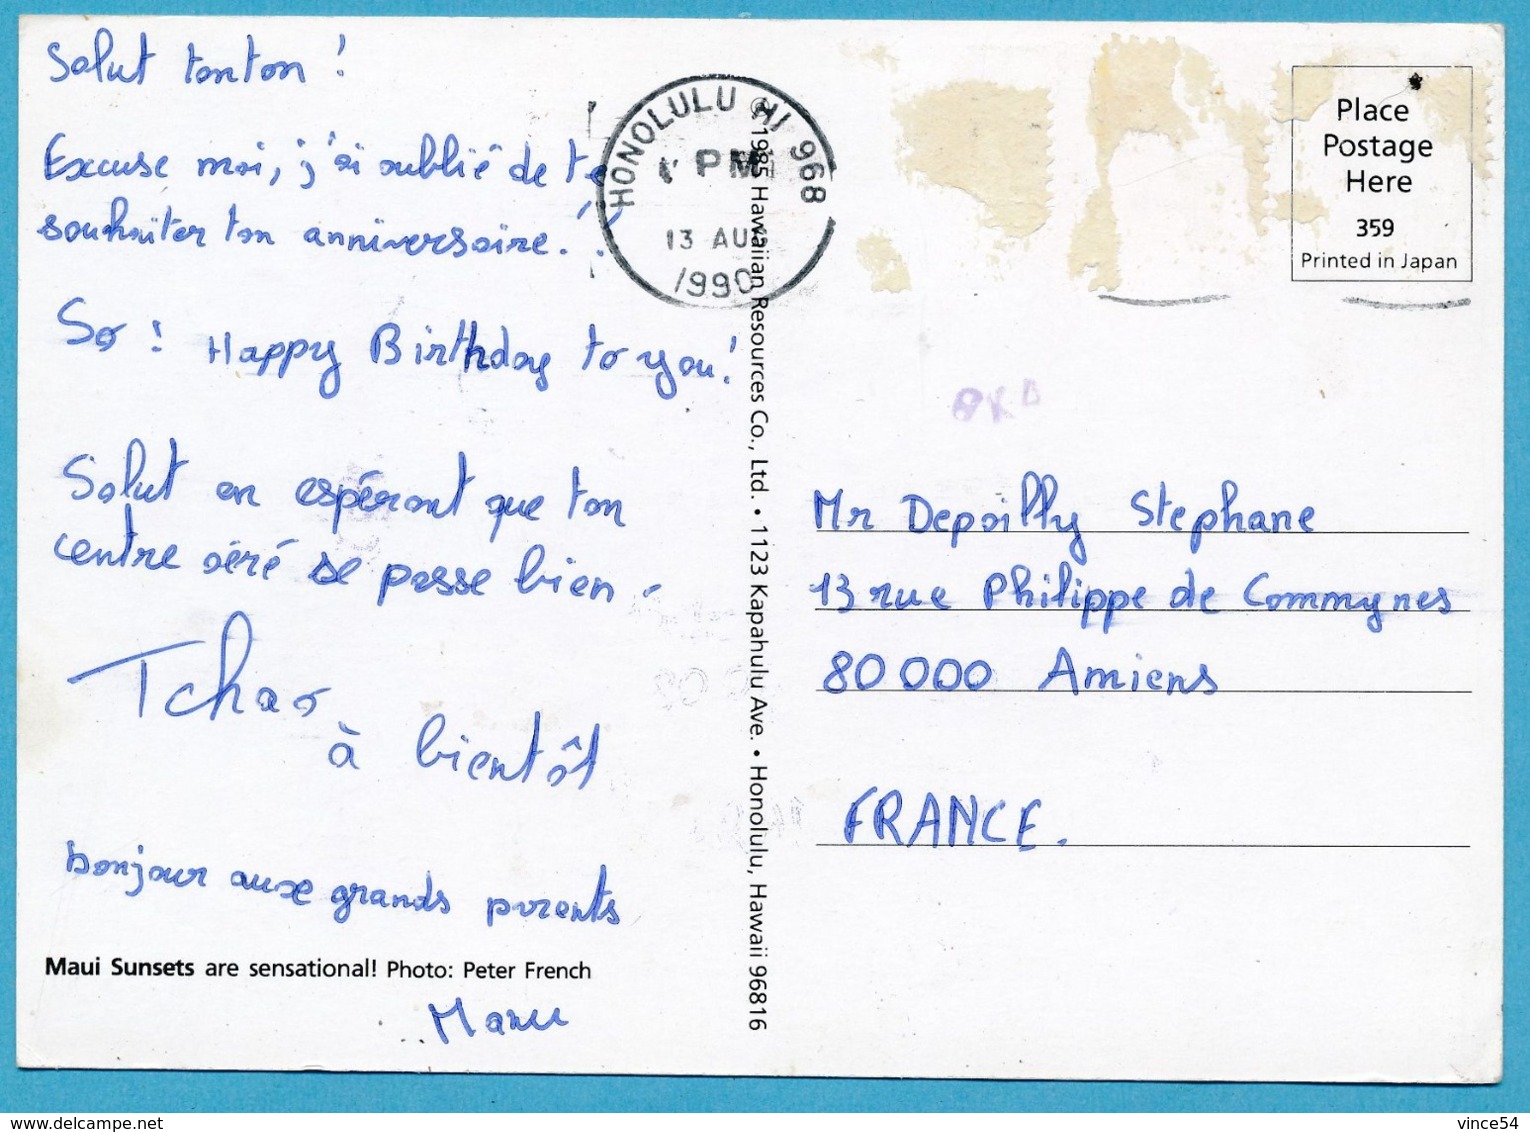 Salut tonton !
Excuse moi, j'ai oublié de te
souhaiter ton anniversaire. !
So ! Happy Birthday to you !
Salut en espérant que ton
centre aéré se passe bien .
Tchao
à bientôt
bonjour aux grands parents
Maui Sunsets are sensational! Photo: Peter French
Manu
HONOLULU HI 968
PM
13 AUG
1990
© 1985 Hawaiian Resources Co., Ltd. • 1123 Kapahulu Ave. • Honolulu, Hawaii 96816
Place
Postage
Here
359
Printed in Japan
Mr Depoilly Stephane
13 rue Philippe de Commynes
80 000 Amiens
FRANCE.
vince54